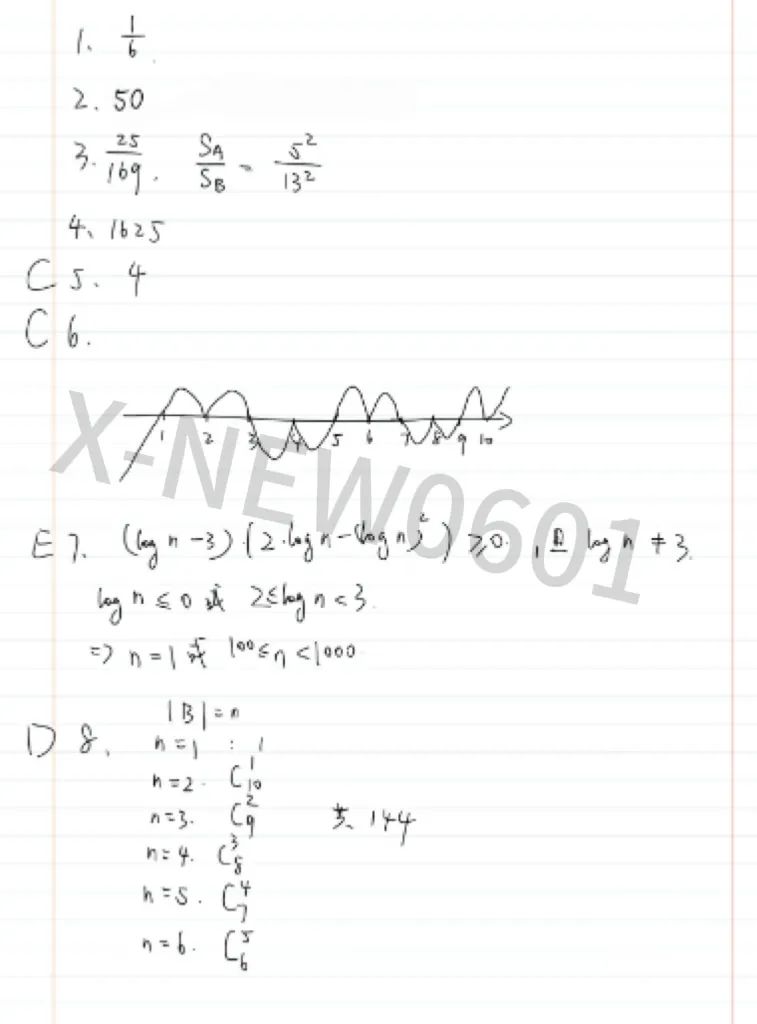 1. 1/6.
2. 50
3. 25/169. S_A/S_B = 5²/13²
4、1625
C 5. 4
C 6.
1 2 3 4 5 6 7 8 9 10
X-NEW0601
E 7. (log n - 3)·(2·log n - (log n)²) ≥ 0. , 且 log n ≠ 3.
log n ≤ 0 或 2 ≤ log n < 3.
=> n = 1 或 100 ≤ n < 1000
|B| = n
D 8. n = 1 : 1
n = 2. C₁₀¹
n = 3. C₉² 144
n = 4. C₈³
n = 5. C₇⁴
n = 6. C₆⁵